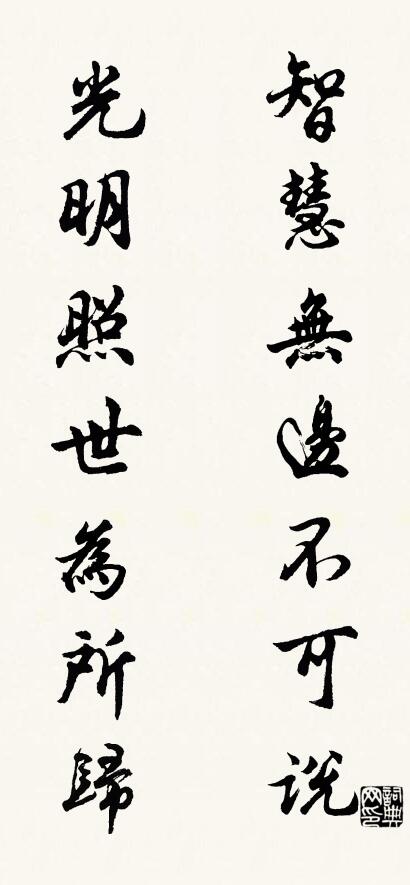 智慧無邊不可說
光明照世為所歸
詞典网